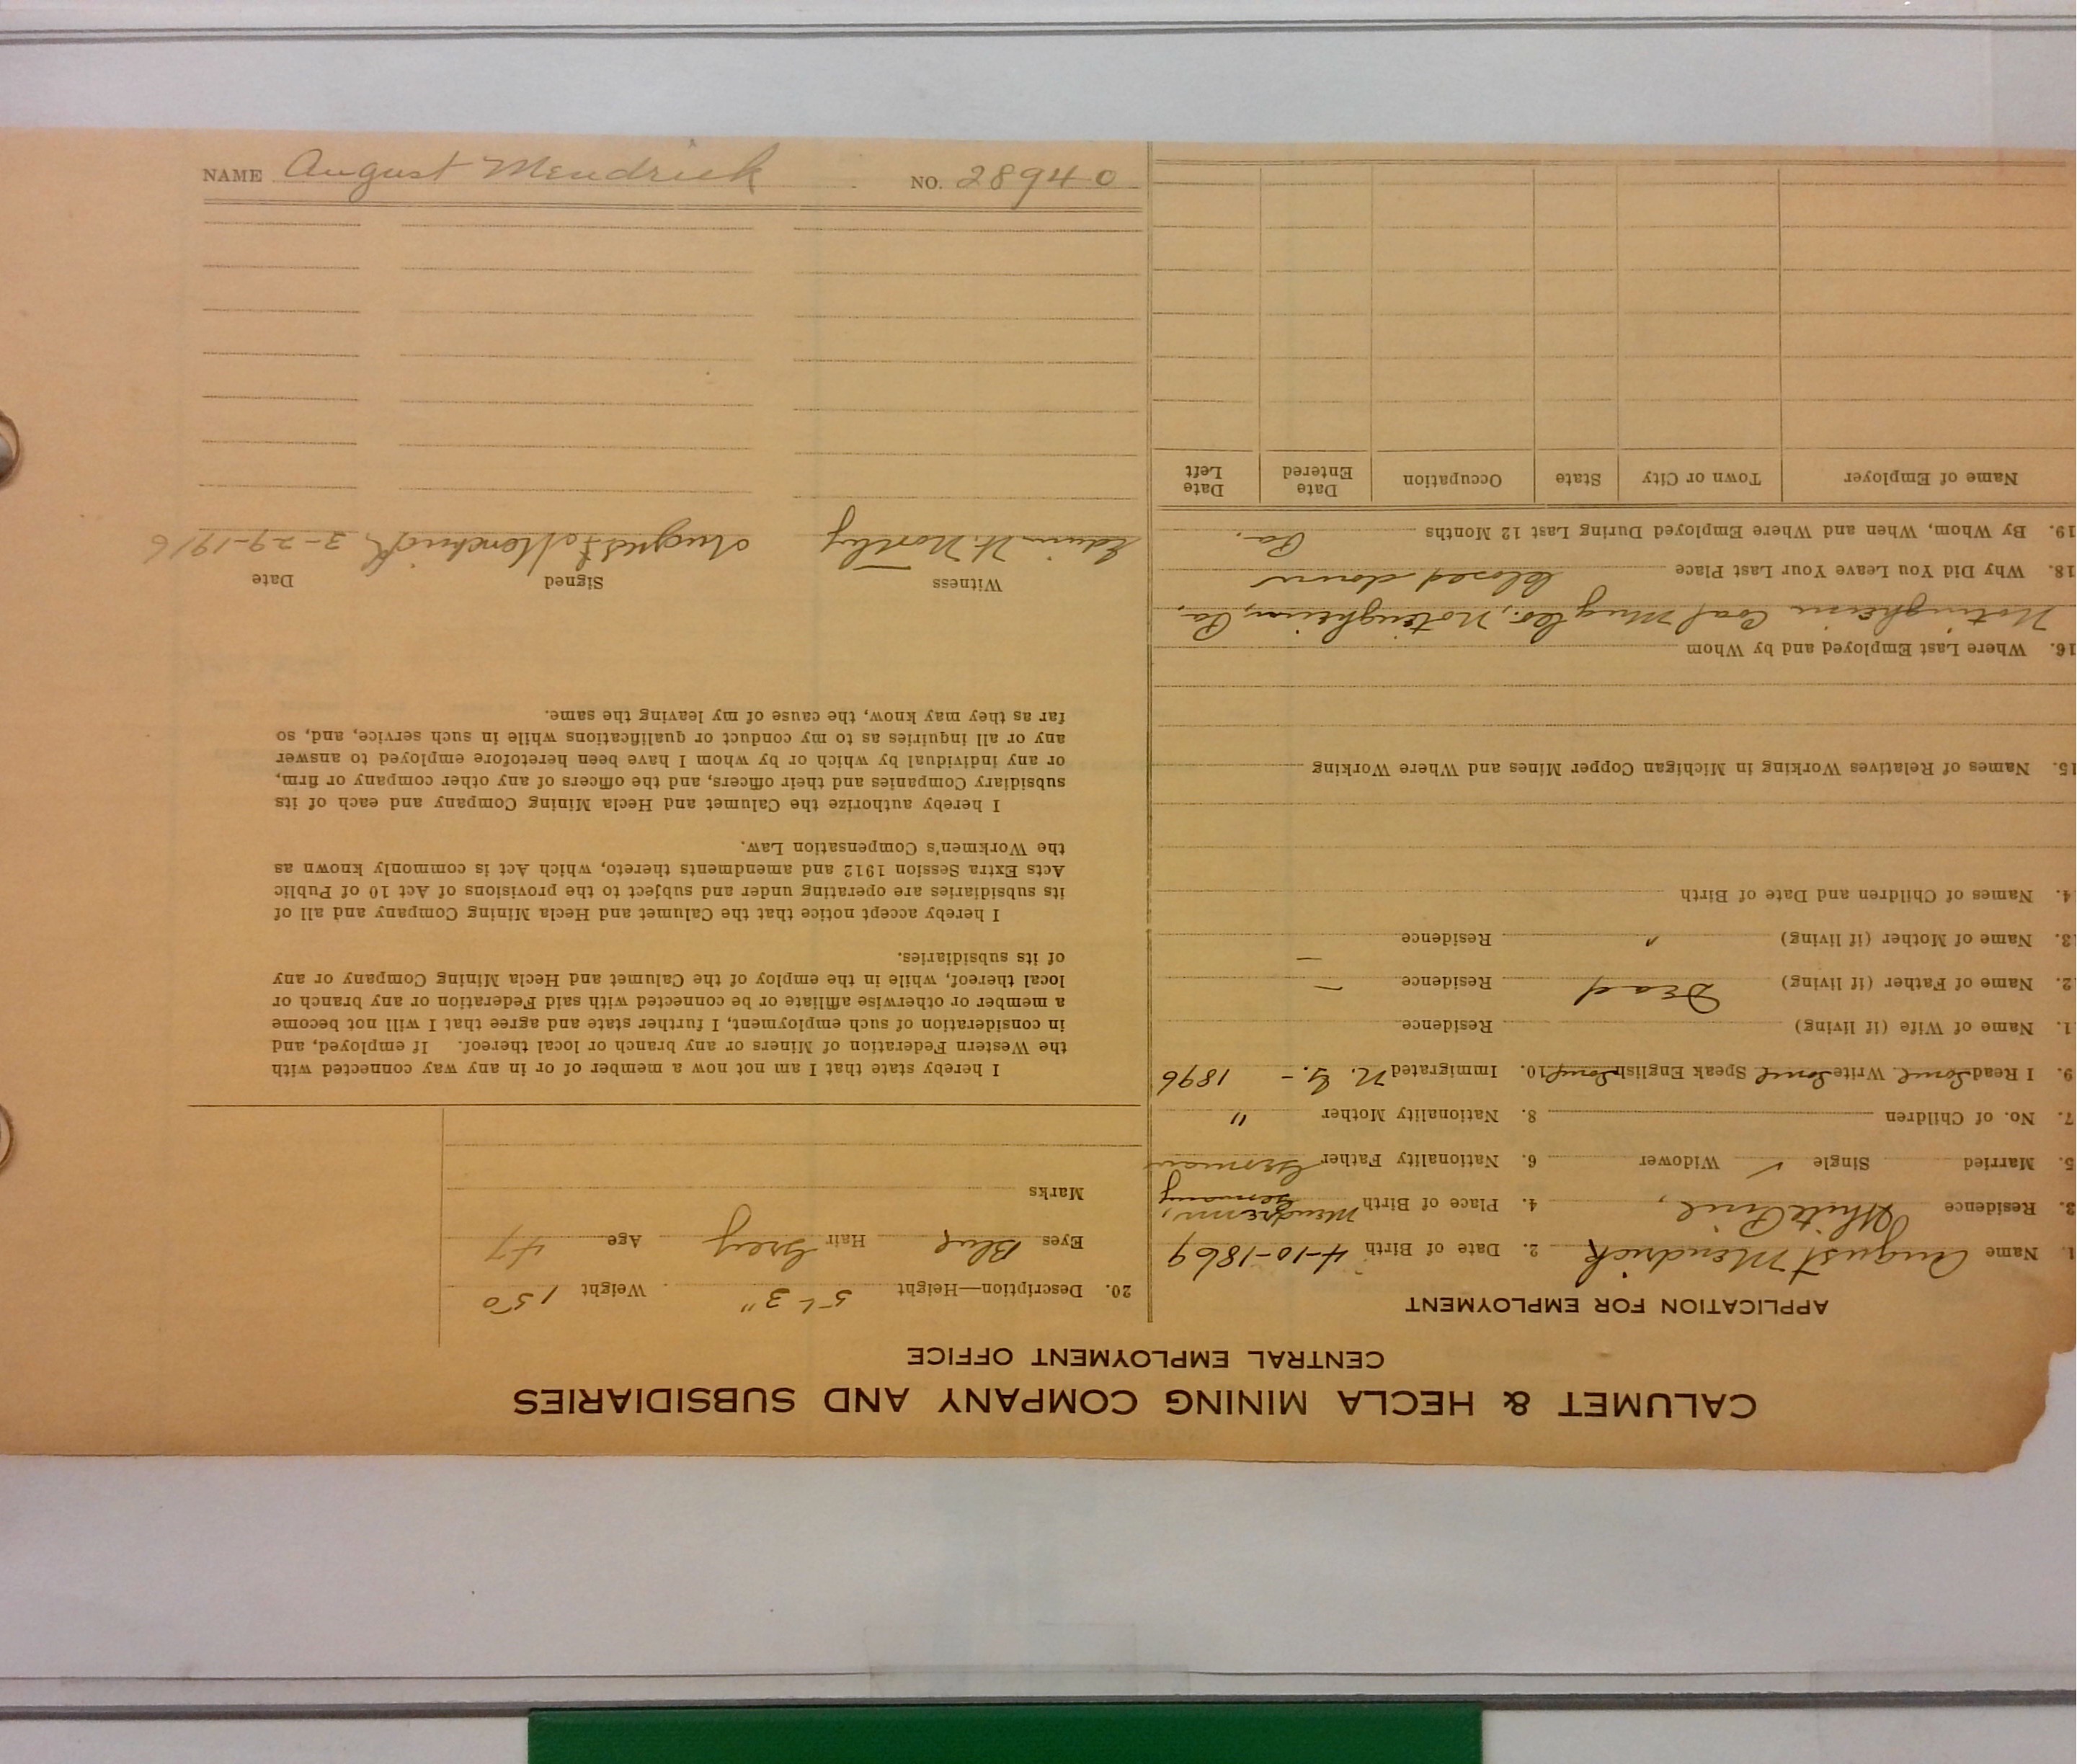 CALUMET & HECLA MINING COMPANY AND SUBSIDIARIES
CENTRAL EMPLOYMENT OFFICE
APPLICATION FOR EMPLOYMENT
1. Name August Mendrick 2. Date of Birth 4-10-1869
3. Residence White Pine, 4. Place of Birth Germany
5. Married Single ✓ Widower 6. Nationality Father German
7. No. of Children 8. Nationality Mother "
9. I Read Some Write Some Speak English Some 10. Immigrated N. Y. - 1896
1. Name of Wife (if living) Residence
2. Name of Father (if living) Dead Residence -
3. Name of Mother (if living) " Residence -
4. Names of Children and Date of Birth
15. Names of Relatives Working in Michigan Copper Mines and Where Working
16. Where Last Employed and by Whom
Notingheim Coal Mng Co. Notingheim, Pa.
18. Why Did You Leave Your Last Place Closed down
19. By Whom, When and Where Employed During Last 12 Months Pa.
Name of Employer Town or City State Occupation Date Entered Date Left
20. Description—Height 5'-3" Weight 150
Eyes Blue Hair Grey Age 47
Marks
I hereby state that I am not now a member of or in any way connected with
the Western Federation of Miners or any branch or local thereof. If employed, and
in consideration of such employment, I further state and agree that I will not become
a member or otherwise affiliate or be connected with said Federation or any branch or
local thereof, while in the employ of the Calumet and Hecla Mining Company or any
of its subsidiaries.
I hereby accept notice that the Calumet and Hecla Mining Company and all of
its subsidiaries are operating under and subject to the provisions of Act 10 of Public
Acts Extra Session 1912 and amendments thereto, which Act is commonly known as
the Workmen's Compensation Law.
I hereby authorize the Calumet and Hecla Mining Company and each of its
subsidiary Companies and their officers, and the officers of any other company or firm,
or any individual by which or by whom I have been heretofore employed to answer
any or all inquiries as to my conduct or qualifications while in such service, and, so
far as they may know, the cause of my leaving the same.
Witness Signed Date
Edwin W. August Mendrick 3-29-1916
NAME August Mendrick NO. 28940